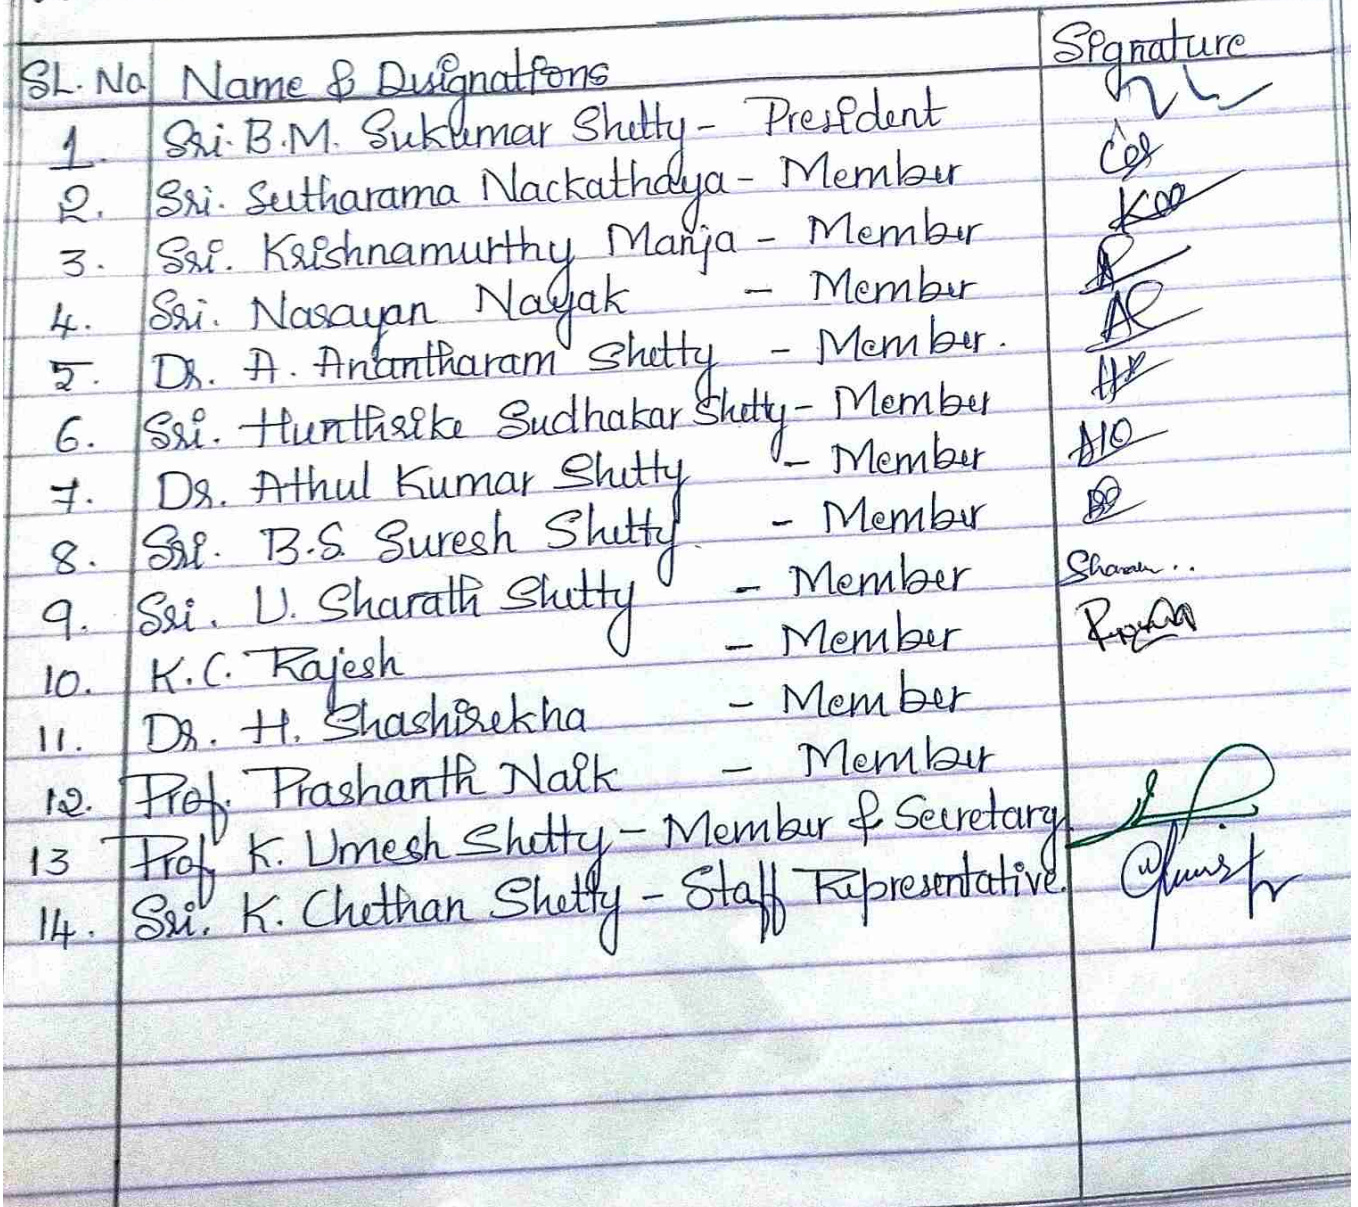 SL. No Name & Designations Signature
1. Sri. B.M. Sukumar Shetty - President
2. Sri. Seetharama Nackathaya - Member
3. Sri. Krishnamurthy Manja - Member
4. Sri. Narayan Nayak - Member
5. Dr. A. Anantharam Shetty - Member.
6. Sri. Hunthrike Sudhakar Shetty - Member
7. Dr. Athul Kumar Shetty - Member
8. Sri. B.S. Suresh Shetty - Member
9. Sri. U. Sharath Shetty - Member
10. K.C. Rajesh - Member
11. Dr. H. Shashirekha - Member
12. Prof. Prashanth Naik - Member
13 Prof K. Umesh Shetty - Member & Secretary
14. Sri. K. Chethan Shetty - Staff Representative.